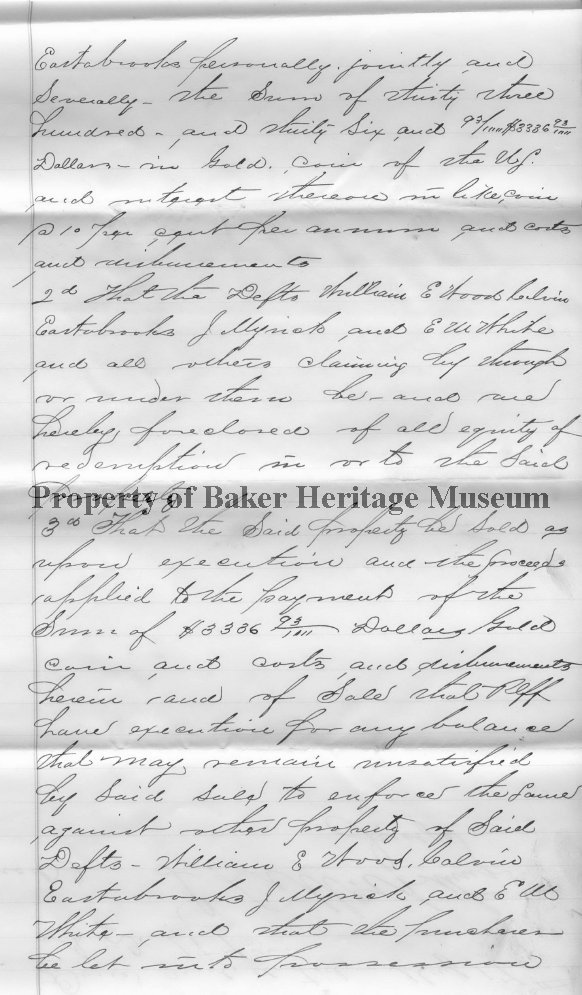 Eastabrooks personally, jointly and
Severally - the Sum of thirty three
hundred - and thirty Six and 93/100 $3336 93/100
Dollars - in Gold coin of the U.S.
and interest thereon in like coin
@ 10 per cent per annum and costs
and disbursements
2d That the Defts William E Wood Calvin
Eastabrooks J Myrick and E W White
and all others claiming by through
or under them be - and are
hereby foreclosed of all equity of
redemption in or to the Said
Property of Baker Heritage Museum
3d That the Said property be Sold as
upon execution and the proceeds
applied to the payment of the
Sum of $3336 93/100 Dollars Gold
Coin and costs and disbursements
herein and of Sale that Plff
have execution for any balance
that may remain unsatisfied
by Said Sale to enforce the Same
against other property of Said
Defts - William E Wood, Calvin
Eastabrooks J Myrick and E W
White - and that the purchaser
be let into possession